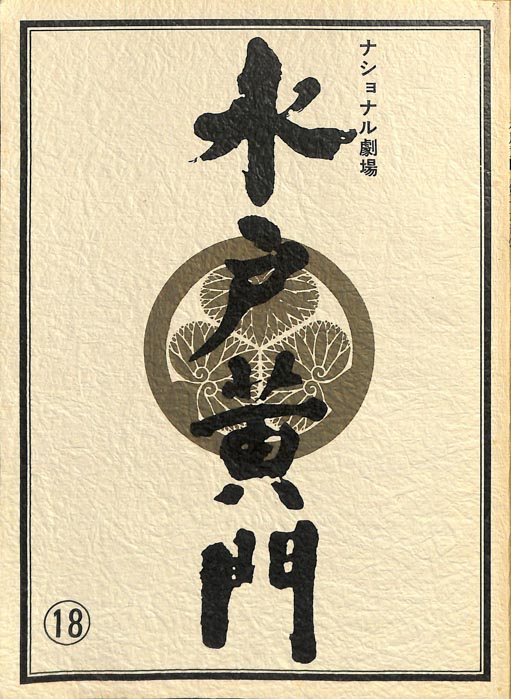 ナショナル劇場
水戸黄門
⑱